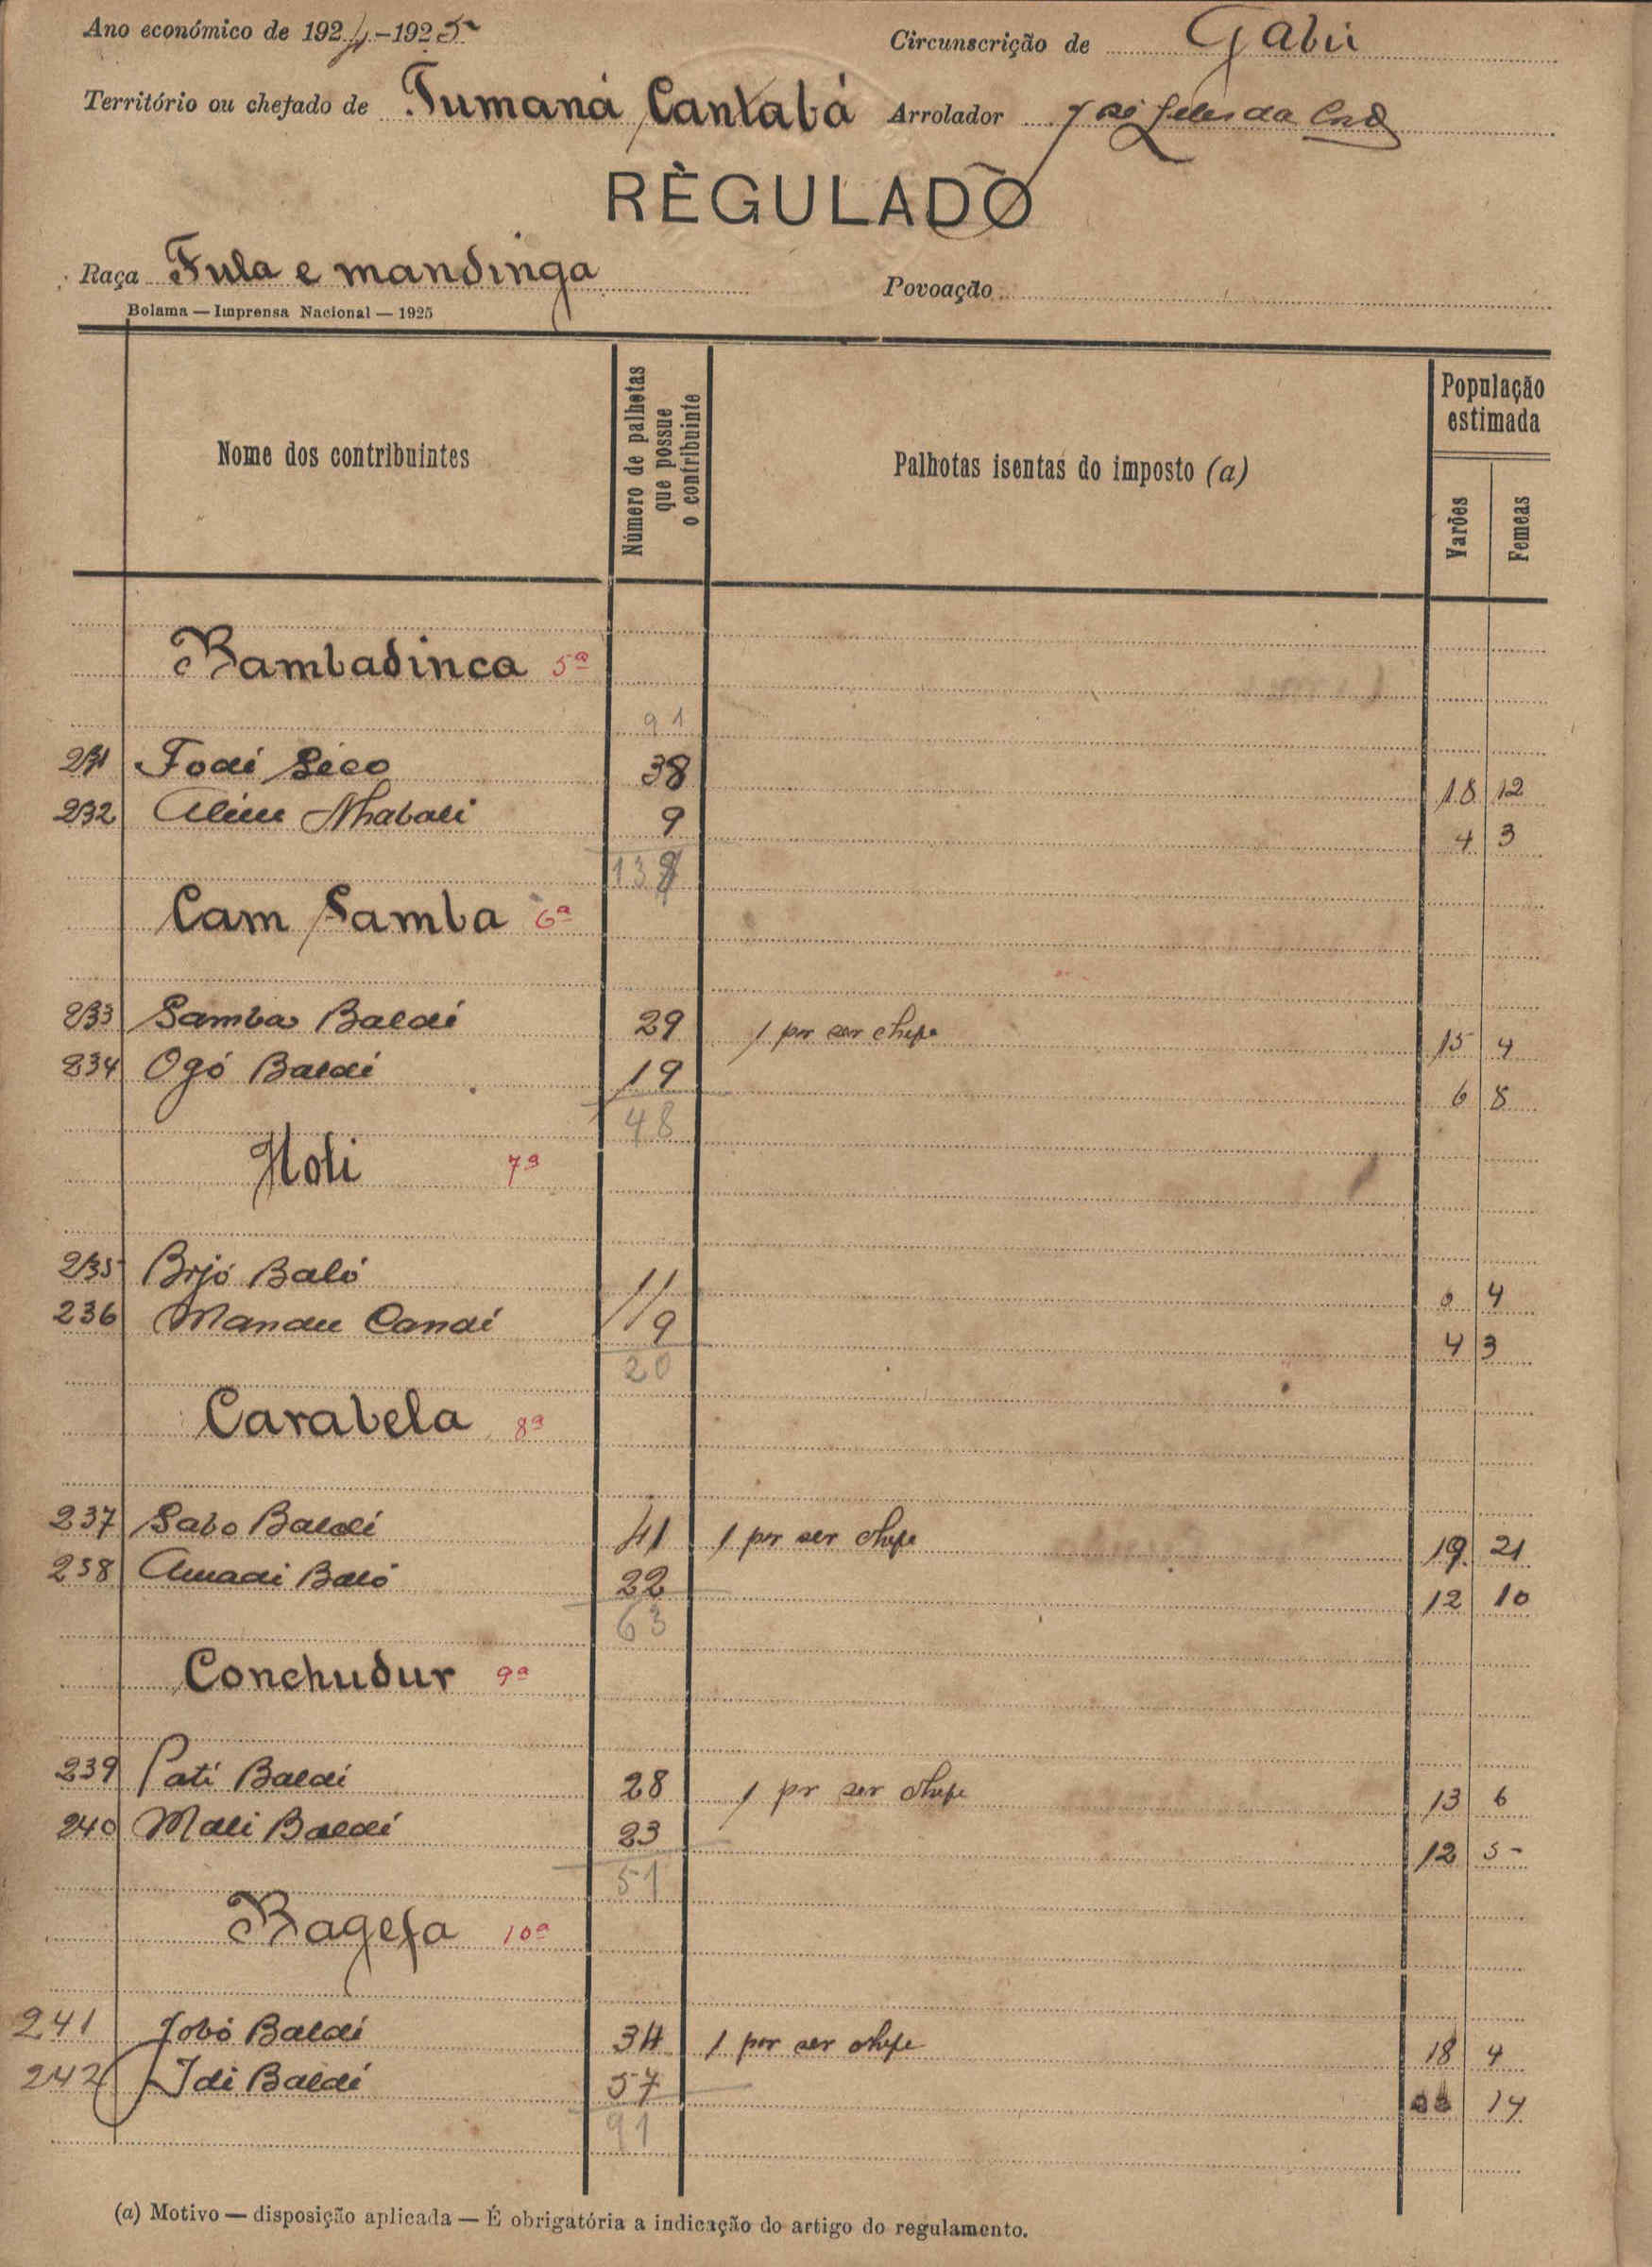 Ano económico de 1924-1925
Circunscrição de Gabú
Território ou chefado de Tumaná Cantabá Arrolador José Teles da
RÈGULADO
Raça Fula e mandinga
Povoação
Bolama — Imprensa Nacional — 1925
Nome dos contribuintes
Número de palhotas que possue o contribuinte
Palhotas isentas do imposto (a)
População estimada
Varões
Femeas
Bambadinca 5ª
91
231 Fodé Séco 38 18 12
232 Aliu Nhabali 9 4 3
138
Cam Samba 6ª
233 Samba Baldé 29 1 por ser chefe 15 4
234 Ogó Baldé 19 6 8
48
Holi 7ª
235 Brjó Baló 11 4
236 Mandu Candé 9 4 3
20
Carabela 8ª
237 Sabo Baldé 41 1 por ser chefe 19 21
238 Amadi Baló 22 12 10
63
Conchudur 9ª
239 Paté Baldé 28 1 pr ser chefe 13 6
240 Mali Baldé 23 12 5
51
Bagefa 10ª
241 Jobó Baldé 34 1 por ser chefe 18 4
242 Idi Baldé 57 14
91
(a) Motivo — disposição aplicada — É obrigatória a indicação do artigo do regulamento.